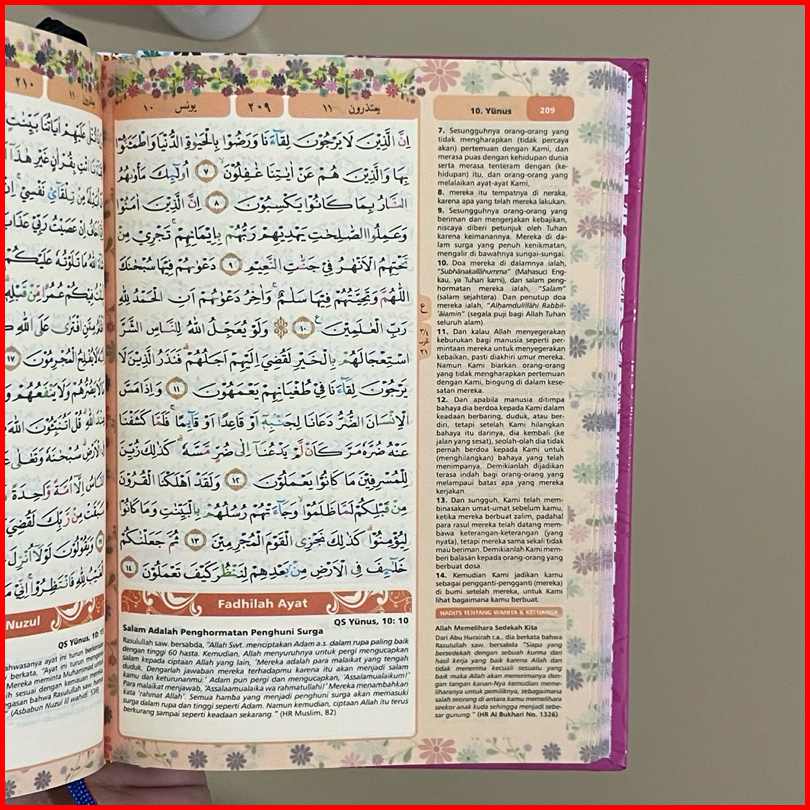 يعتذرون ١١
٢٠٩
يونس ١٠
اِنَّ الَّذِيْنَ لَا يَرْجُوْنَ لِقَاۤءَنَا وَرَضُوْا بِالْحَيٰوةِ الدُّنْيَا وَاطْمَـَٔنُّوْا
بِهَا وَالَّذِيْنَ هُمْ عَنْ اٰيٰتِنَا غٰفِلُوْنَۙ ٧ اُولٰۤىِٕكَ مَأْوٰىهُمُ
النَّارُ بِمَا كَانُوْا يَكْسِبُوْنَ ٨ اِنَّ الَّذِيْنَ اٰمَنُوْا
وَعَمِلُوا الصّٰلِحٰتِ يَهْدِيْهِمْ رَبُّهُمْ بِاِيْمَانِهِمْۚ تَجْرِيْ مِنْ
تَحْتِهِمُ الْاَنْهٰرُ فِيْ جَنّٰتِ النَّعِيْمِ ٩ دَعْوٰىهُمْ فِيْهَا سُبْحٰنَكَ
اللّٰهُمَّ وَتَحِيَّتُهُمْ فِيْهَا سَلٰمٌۚ وَاٰخِرُ دَعْوٰىهُمْ اَنِ الْحَمْدُ لِلّٰهِ
رَبِّ الْعٰلَمِيْنَ ١٠ ۞ وَلَوْ يُعَجِّلُ اللّٰهُ لِلنَّاسِ الشَّرَّ
اسْتِعْجَالَهُمْ بِالْخَيْرِ لَقُضِيَ اِلَيْهِمْ اَجَلُهُمْۗ فَنَذَرُ الَّذِيْنَ لَا
يَرْجُوْنَ لِقَاۤءَنَا فِيْ طُغْيَانِهِمْ يَعْمَهُوْنَ ١١ وَاِذَا مَسَّ
الْاِنْسَانَ الضُّرُّ دَعَانَا لِجَنْۢبِهٖٓ اَوْ قَاعِدًا اَوْ قَاۤىِٕمًاۚ فَلَمَّا كَشَفْنَا
عَنْهُ ضُرَّهٗ مَرَّ كَاَنْ لَّمْ يَدْعُنَآ اِلٰى ضُرٍّ مَّسَّهٗۗ كَذٰلِكَ زُيِّنَ
لِلْمُسْرِفِيْنَ مَا كَانُوْا يَعْمَلُوْنَ ١٢ وَلَقَدْ اَهْلَكْنَا الْقُرُوْنَ
مِنْ قَبْلِكُمْ لَمَّا ظَلَمُوْاۙ وَجَاۤءَتْهُمْ رُسُلُهُمْ بِالْبَيِّنٰتِ وَمَا كَانُوْا
لِيُؤْمِنُوْاۗ كَذٰلِكَ نَجْزِى الْقَوْمَ الْمُجْرِمِيْنَ ١٣ ثُمَّ جَعَلْنٰكُمْ
خَلٰۤىِٕفَ فِى الْاَرْضِ مِنْۢ بَعْدِهِمْ لِنَنْظُرَ كَيْفَ تَعْمَلُوْنَ ١٤
Fadhilah Ayat
QS Yūnus, 10: 10
Salam Adalah Penghormatan Penghuni Surga
Rasulullah saw. bersabda, "Allah Swt. menciptakan Adam a.s. dalam rupa paling baik
dengan tinggi 60 hasta. Kemudian, Allah menyuruhnya untuk pergi mengucapkan
salam kepada ciptaan Allah yang lain, 'Mereka adalah para malaikat yang tengah
duduk. Dengarlah jawaban mereka terhadapmu karena itu akan menjadi salam
kamu dan keturunanmu.' Adam pun pergi dan mengucapkan, 'Assalamualaikum!'
Para malaikat menjawab, 'Assalaamualaika wa rahmatullahi!' Mereka menambahkan
kata 'rahmat Allah'. Semua hamba yang menjadi penghuni surga akan memasuki
surga dalam rupa dan tinggi seperti Adam. Namun kemudian, ciptaan Allah itu terus
berkurang sampai seperti keadaan sekarang." (HR Muslim, 82)
10. Yūnus
209
7. Sesungguhnya orang-orang yang
tidak mengharapkan (tidak percaya
akan) pertemuan dengan Kami, dan
merasa puas dengan kehidupan dunia
serta merasa tenteram dengan (ke-
hidupan) itu, dan orang-orang yang
melalaikan ayat-ayat Kami,
8. mereka itu tempatnya di neraka,
karena apa yang telah mereka lakukan.
9. Sesungguhnya orang-orang yang
beriman dan mengerjakan kebajikan,
niscaya diberi petunjuk oleh Tuhan
karena keimanannya. Mereka di da-
lam surga yang penuh kenikmatan,
mengalir di bawahnya sungai-sungai.
10. Doa mereka di dalamnya ialah,
"Subhānakallāhumma" (Mahasuci Eng-
kau, ya Tuhan kami), dan salam peng-
hormatan mereka ialah, "Salam"
(salam sejahtera). Dan penutup doa
mereka ialah, "Alhamdulillāhi Rabbil-
'ālamin" (segala puji bagi Allah Tuhan
seluruh alam).
11. Dan kalau Allah menyegerakan
keburukan bagi manusia seperti per-
mintaan mereka untuk menyegerakan
kebaikan, pasti diakhiri umur mereka.
Namun Kami biarkan orang-orang
yang tidak mengharapkan pertemuan
dengan Kami, bingung di dalam kese-
satan mereka.
12. Dan apabila manusia ditimpa
bahaya dia berdoa kepada Kami dalam
keadaan berbaring, duduk, atau ber-
diri, tetapi setelah Kami hilangkan
bahaya itu darinya, dia kembali (ke
jalan yang sesat), seolah-olah dia tidak
pernah berdoa kepada Kami untuk
(menghilangkan) bahaya yang telah
menimpanya. Demikianlah dijadikan
terasa indah bagi orang-orang yang
melampaui batas apa yang mereka
kerjakan.
13. Dan sungguh, Kami telah mem-
binasakan umat-umat sebelum kamu,
ketika mereka berbuat zalim, padahal
para rasul mereka telah datang mem-
bawa keterangan-keterangan (yang
nyata), tetapi mereka sama sekali tidak
mau beriman. Demikianlah Kami mem-
beri balasan kepada orang-orang yang
berbuat dosa.
14. Kemudian Kami jadikan kamu
sebagai pengganti-pengganti (mereka)
di bumi setelah mereka, untuk Kami
lihat bagaimana kamu berbuat.
HADITS TENTANG WANITA & KELUARGA
Allah Memelihara Sedekah Kita
Dari Abu Hurairah r.a., dia berkata bahwa
Rasulullah saw. bersabda "Siapa yang
bersedekah dengan sebuah kurma dari
hasil kerja yang baik karena Allah dan
tidak menerima kecuali sesuatu yang
baik maka Allah akan menerimanya den-
gan tangan kanan-Nya kemudian meme-
liharanya untuk pemiliknya, sebagaimana
salah seorang di antara kamu memelihara
seekor anak kuda sehingga menjadi sebe-
sar gunung." (HR Al Bukhari No. 1326)